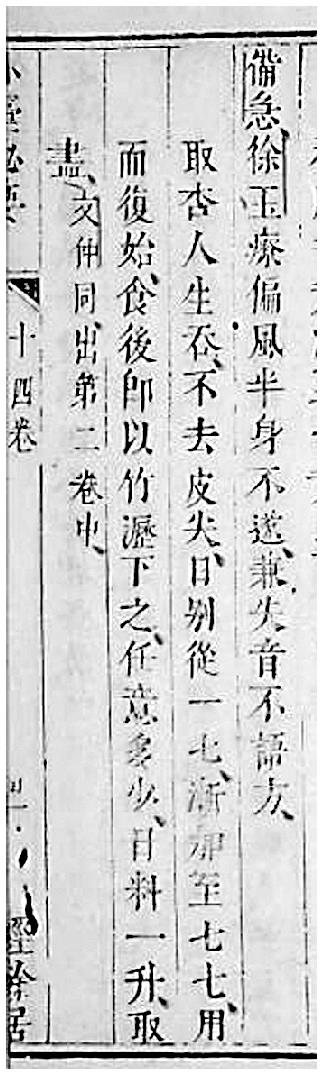 備急徐王療偏風半身不遂、兼失音不語方、
取杏人生吞、不去皮尖、日別從一七、漸加至七七、用
而復始、食後即以竹瀝下之、任意多少、日料一升、取
盡、文仲同、出第二卷中、
臺祕要
十四卷
經餘居